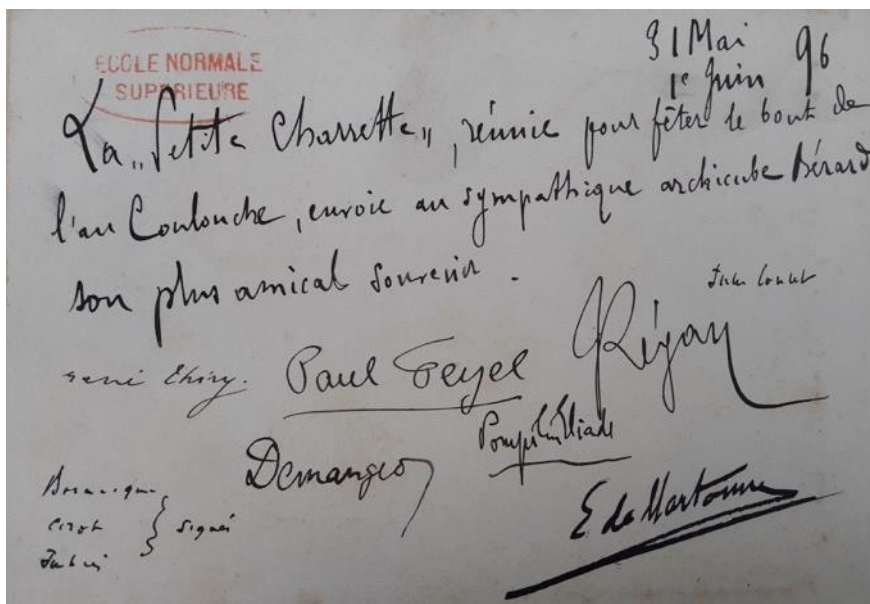 ECOLE NORMALE
SUPERIEURE
31 Mai
1e Juin 96
La „Petite Charrette„, réunie pour fêter le bout de
l'an Coulouche, envoie au sympathique archicube Bérard
son plus amical souvenir.
René Thiry. Paul Feyel
Demangeon
Pompiliu Eliade
E de Martonne
Cirot
signé